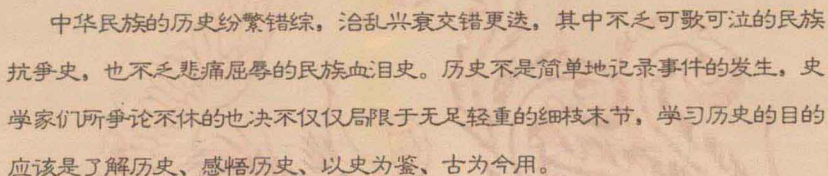 中华民族的历史纷繁错综，治乱兴衰交错更迭，其中不乏可歌可泣的民族
抗争史，也不乏悲痛屈辱的民族血泪史。历史不是简单地记录事件的发生，史
学家们所争论不休的也决不仅仅局限于无足轻重的细枝末节，学习历史的目的
应该是了解历史、感悟历史、以史为鉴、古为今用。